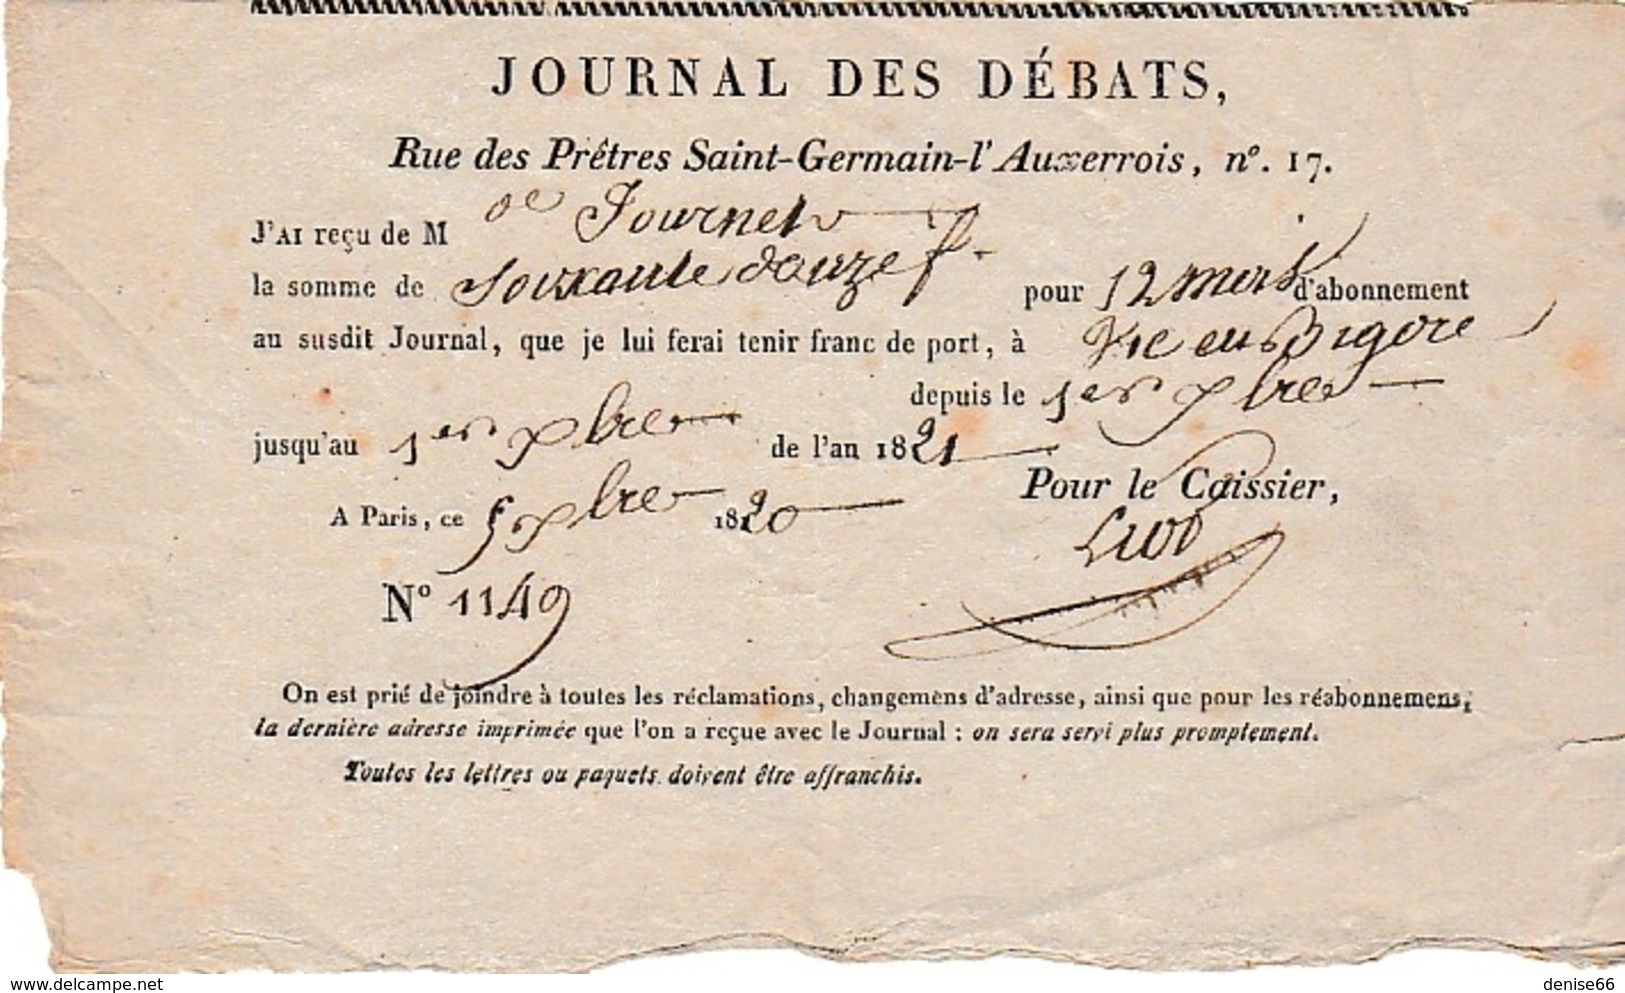 JOURNAL DES DÉBATS,
Rue des Prêtres Saint-Germain-l'Auxerrois, n°. 17.
J'AI reçu de M de Journet
la somme de Soixante douze f. pour 12 mois d'abonnement
au susdit Journal, que je lui ferai tenir franc de port, à Vic en Bigore
depuis le 1er xbre
jusqu'au 1er xbre de l'an 1821
Pour le Caissier,
A Paris, ce 5 xbre 1820
N° 1149
On est prié de joindre à toutes les réclamations, changemens d'adresse, ainsi que pour les réabonnemens,
la dernière adresse imprimée que l'on a reçue avec le Journal : on sera servi plus promptement.
Toutes les lettres ou paquets doivent être affranchis.
www.delcampe.net
denise66